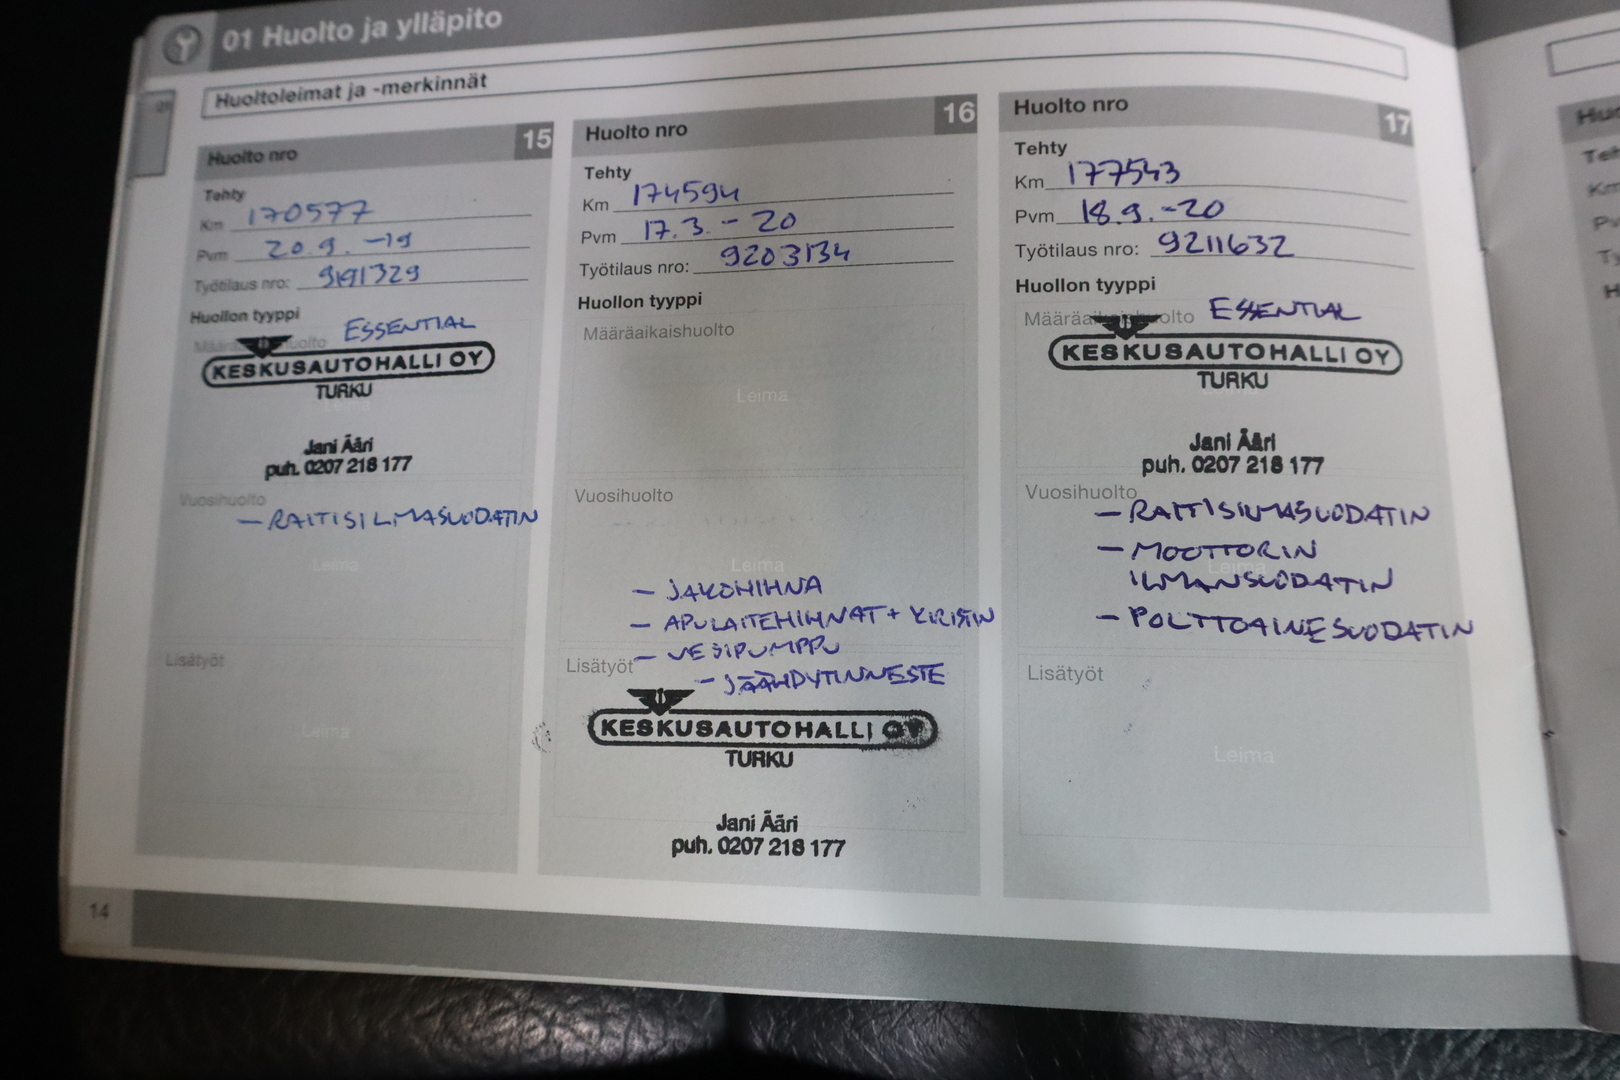 01 Huolto ja ylläpito
Huoltoleimat ja -merkinnät
Huolto nro 15
Tehty
Km 170577
Pvm 20.9.-19
Työtilaus nro: 9191329
Huollon tyyppi
Määräaikaishuolto ESSENTIAL
KESKUSAUTOHALLI OY
TURKU
Leima
Jani Ääri
puh. 0207 218 177
Vuosihuolto
- RAITISILMASUODATIN
Leima
Lisätyöt
Leima
14
Huolto nro 16
Tehty
Km 174594
Pvm 17.3.-20
Työtilaus nro: 9203134
Huollon tyyppi
Määräaikaishuolto
Leima
Vuosihuolto
Leima
- JAKOHIHNA
- APULAITEHIHNAT + KIRISTIN
- VESIPUMPPU
Lisätyöt
- JÄÄHDYTINNESTE
KESKUSAUTOHALLI OY
TURKU
Jani Ääri
puh. 0207 218 177
Huolto nro 17
Tehty
Km 177543
Pvm 18.9.-20
Työtilaus nro: 9211632
Huollon tyyppi
Määräaikaishuolto ESSENTIAL
KESKUSAUTOHALLI OY
TURKU
Jani Ääri
puh. 0207 218 177
Vuosihuolto
- RAITISILMASUODATIN
- MOOTTORIN
ILMANSUODATIN
Leima
- POLTTOAINESUODATIN
Lisätyöt
Leima